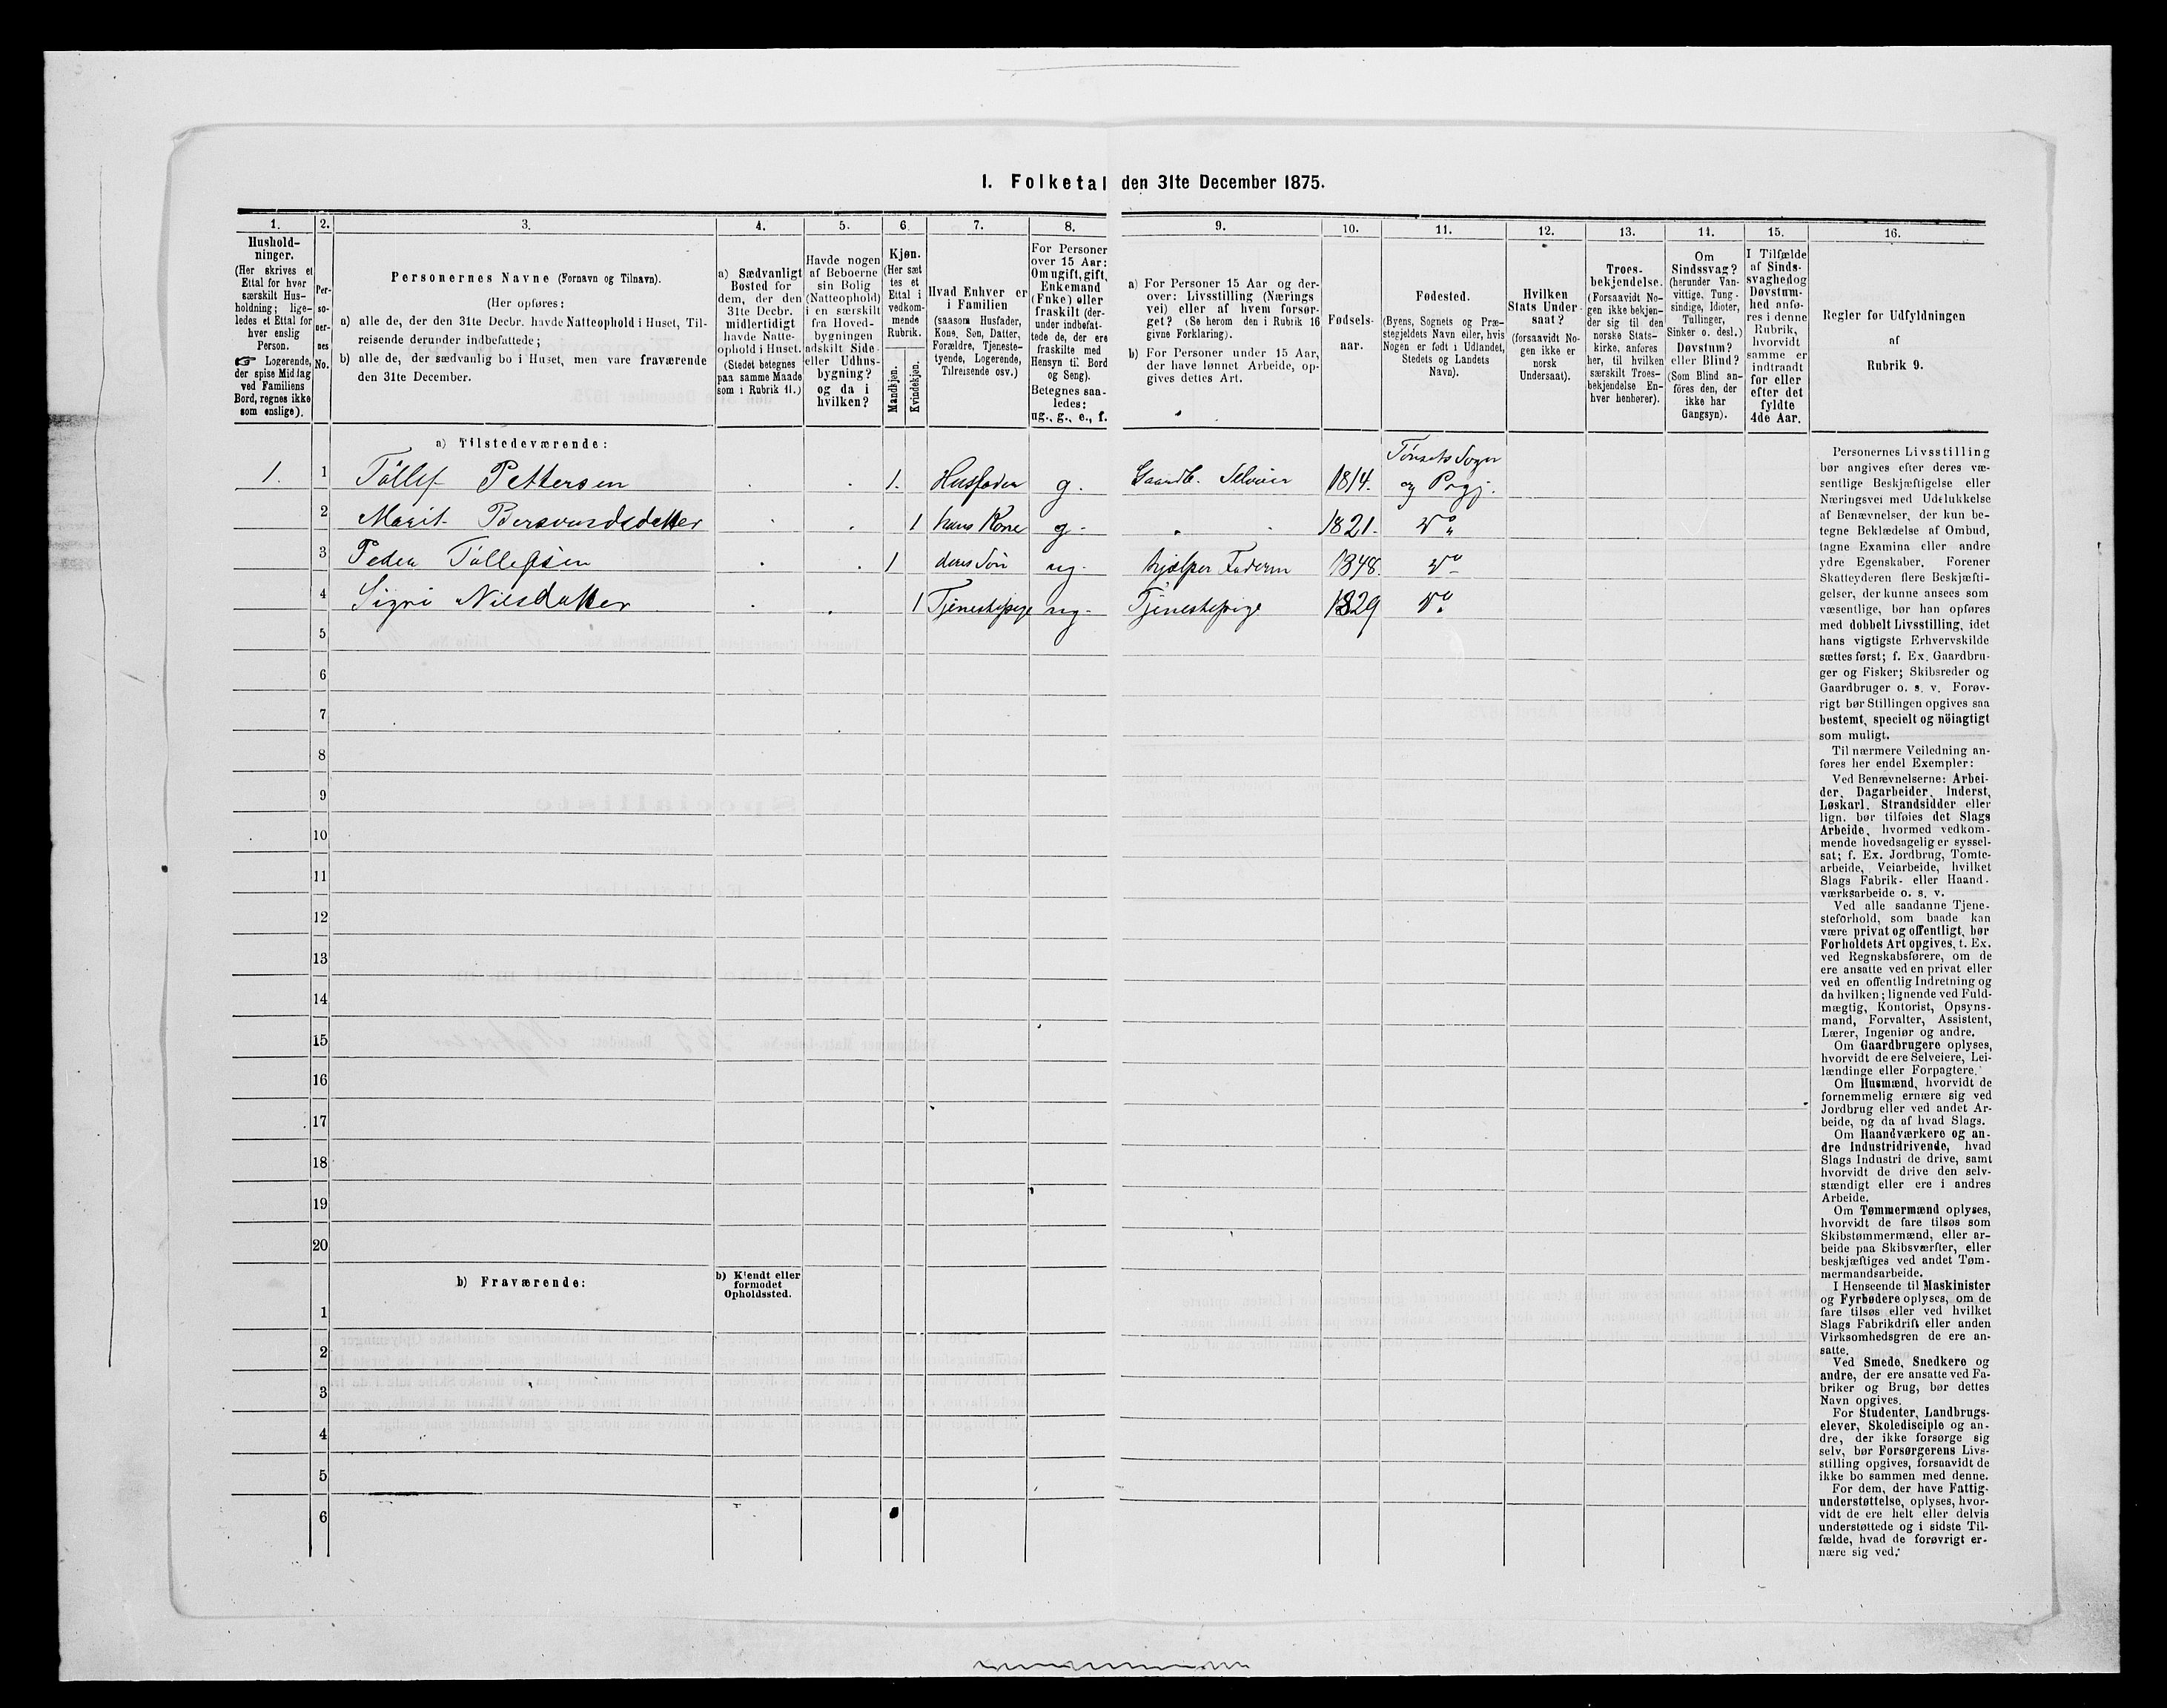 I. Folketal den 31te December 1875.
1. 2. 3. 4. 5. 6. 7. 8. 9. 10. 11. 12. 13. 14. 15. 16.
Hushold-
ninger.
(Her skrives et
Ettal for hver
særskilt Hus-
holdning; lige-
ledes et Ettal for
hver enslig
Person.
☞ Logerende,
der spise Middag
ved Familiens
Bord, regnes ikke
som enslige).
Per-
so-
ner-
nes
No.
Personernes Navne (Fornavn og Tilnavn).
(Her opføres:
a) alle de, der den 31te Decbr. havde Natteophold i Huset, Til-
reisende derunder indbefattede;
b) alle de, der sædvanlig bo i Huset, men vare fraværende
den 31te December.
a) Sædvanligt
Bosted for
dem, der den
31te Decbr.
midlertidigt
havde Natte-
ophold i Huset.
(Stedet betegnes
paa samme Maade
som i Rubrik 11.)
Havde nogen
af Beboerne
sin Bolig
(Natteophold)
i en særskilt
fra Hoved-
bygningen
adskilt Side-
eller Udhus-
bygning?
og da i
hvilken?
Kjøn.
(Her sæt
tes et
Ettal i
vedkom-
mende
Rubrik.
Mandkjøn.
Kvindekjøn.
Hvad Enhver er
i Familien
(saasom Husfader,
Kone, Søn, Datter,
Forældre, Tjeneste-
tyende, Logerende,
Tilreisende osv.)
For Personer
over 15 Aar:
Om ugift, gift,
Enkemand
(Enke) eller
fraskilt (der-
under indbefat-
tede de, der ere
fraskilte med
Hensyn til Bord
og Seng).
Betegnes saa-
ledes:
ug., g., e., f.
a) For Personer 15 Aar og der-
over: Livsstilling (Nærings
vei) eller af hvem forsør-
get? (Se herom den i Rubrik 16
givne Forklaring).
b) For Personer under 15 Aar,
der have lønnet Arbeide, op-
gives dettes Art.
Fødsels-
aar.
Fødested.
(Byens, Sognets og Præ-
stegjeldets Navn eller, hvis
Nogen er født i Udlandet,
Stedets og Landets
Navn).
Hvilken
Stats Under-
saat?
(forsaavidt No-
gen ikke er
norsk
Undersaat).
Troes-
bekjendelse.
(Forsaavidt No-
gen ikke bekjen-
der sig til den
norske Stats-
kirke, anføres
her, til hvilken
særskilt Troes-
bekjendelse En-
hver henhører).
Om
Sindssvag?
(herunder Van-
vittige, Tung-
sindige, Idioter,
Tullinger,
Sinker o. desl.)
Døvstum?
eller Blind?
(Som Blind an-
føres den, der
ikke har
Gangsyn).
I Tilfælde
af Sinds-
svaghed og
Døvstum-
hed anfø-
res i denne
Rubrik,
hvorvidt
samme er
indtraadt
før eller
efter det
fyldte
4de Aar.
Regler for Udfyldningen
af
Rubrik 9.
a) Tilstedeværende:
1. 1 Tøllef Pettersen 1. Husfader g. Gaardb. Selveier 1814. Tønsets Sogn
og Prgj.
2 Marit 1 hans Kone g. 1821. Do
3 Peder Tøllefsen 1 deres Søn ug. hjælper Faderen 1848. Do
4 Sigri Nilsdatter 1 Tjenestepige ug. Tjenestepige 1829 Do
5
6
7
8
9
10
11
12
13
14
15
16
17
18
19
20
b) Fraværende:
b) Kjendt eller
formodet
Opholdssted.
1
2
3
4
5
6
Personernes Livsstilling
bør angives efter deres væ-
sentlige Beskjæftigelse eller
Næringsvei med Udelukkelse
af Benævnelser, der kun be-
tegne Beklædelse af Ombud,
tagne Examina eller andre
ydre Egenskaber. Forener
Skatteyderen flere Beskjæfti-
gelser, der kunne ansees som
væsentlige, bør han opføres
med dobbelt Livsstilling, idet
hans vigtigste Erhvervskilde
sættes først; f. Ex. Gaardbru-
ger og Fisker; Skibsreder og
Gaardbruger o. s. v. Forøv-
rigt bør Stillingen opgives saa
bestemt, specielt og nöiagtigt
som muligt.
Til nærmere Veiledning an-
føres her endel Exempler:
Ved Benævnelserne: Arbei-
der, Dagarbeider, Inderst,
Løskarl, Strandsidder eller
lign. bør tilføies det Slags
Arbeide, hvormed vedkom-
mende hovedsagelig er syssel-
sat; f. Ex. Jordbrug, Tomte-
arbeide, Veiarbeide, hvilket
Slags Fabrik- eller Haand-
værksarbeide o. s. v.
Ved alle saadanne Tjene-
steforhold, som baade kan
være privat og offentligt, bør
Forholdets Art opgives, t. Ex.
ved Regnskabsførere, om de
ere ansatte ved en privat eller
ved en offentlig Indretning og
da hvilken; lignende ved Fuld-
mægtig, Kontorist, Opsyns-
mand, Forvalter, Assistent,
Lærer, Ingeniør og andre.
Om Gaardbrugere oplyses,
hvorvidt de ere Selveiere, Lei-
lændinge eller Forpagtere.
Om Husmænd, hvorvidt de
fornemmelig ernære sig ved
Jordbrug eller ved andet Ar-
beide, og da af hvad Slags.
Om Haandværkere og an-
dre Industridrivende, hvad
Slags Industri de drive, samt
hvorvidt de drive den selv-
stændigt eller ere i andres
Arbeide.
Om Tømmermænd oplyses,
hvorvidt de fare tilsøs som
Skibstømmermænd, eller ar-
beide paa Skibsværfter, eller
beskjæftiges ved andet Tøm-
mermandsarbeide.
I Henseende til Maskinister
og Fyrbødere oplyses, om de
fare tilsøs eller ved hvilket
Slags Fabrikdrift eller anden
Virksomhedsgren de ere an-
satte.
Ved Smede, Snedkere og
andre, der ere ansatte ved Fa-
briker og Brug, bør dettes
Navn opgives.
For Studenter, Landbrugs-
elever, Skoledisciple og an-
dre, der ikke forsørge sig
selv, bør Forsørgerens Livs-
stilling opgives, forsaavidt de
ikke bo sammen med denne.
For dem, der have Fattig-
understøttelse, oplyses, hvor-
vidt de ere helt eller delvis
understøttede og i sidste Til-
fælde, hvad de forøvrigt er-
nære sig ved.